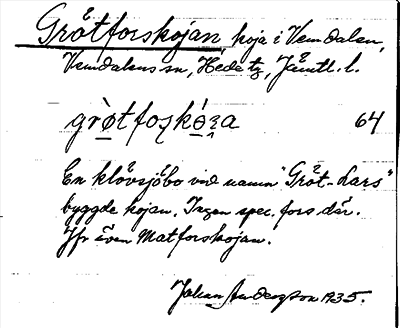 Grötforskojan, koja i Vemdalen,
Vemdalens sn, Hede tg, Jämtl. l.
grö̀tfoskó̱ʒa 64
En klövsjöbo vid namn "Gröt-Lars"
byggde kojan. Ingen spec. fors där.
Jfr även Matforskojan.
Johan Andersson 1935.